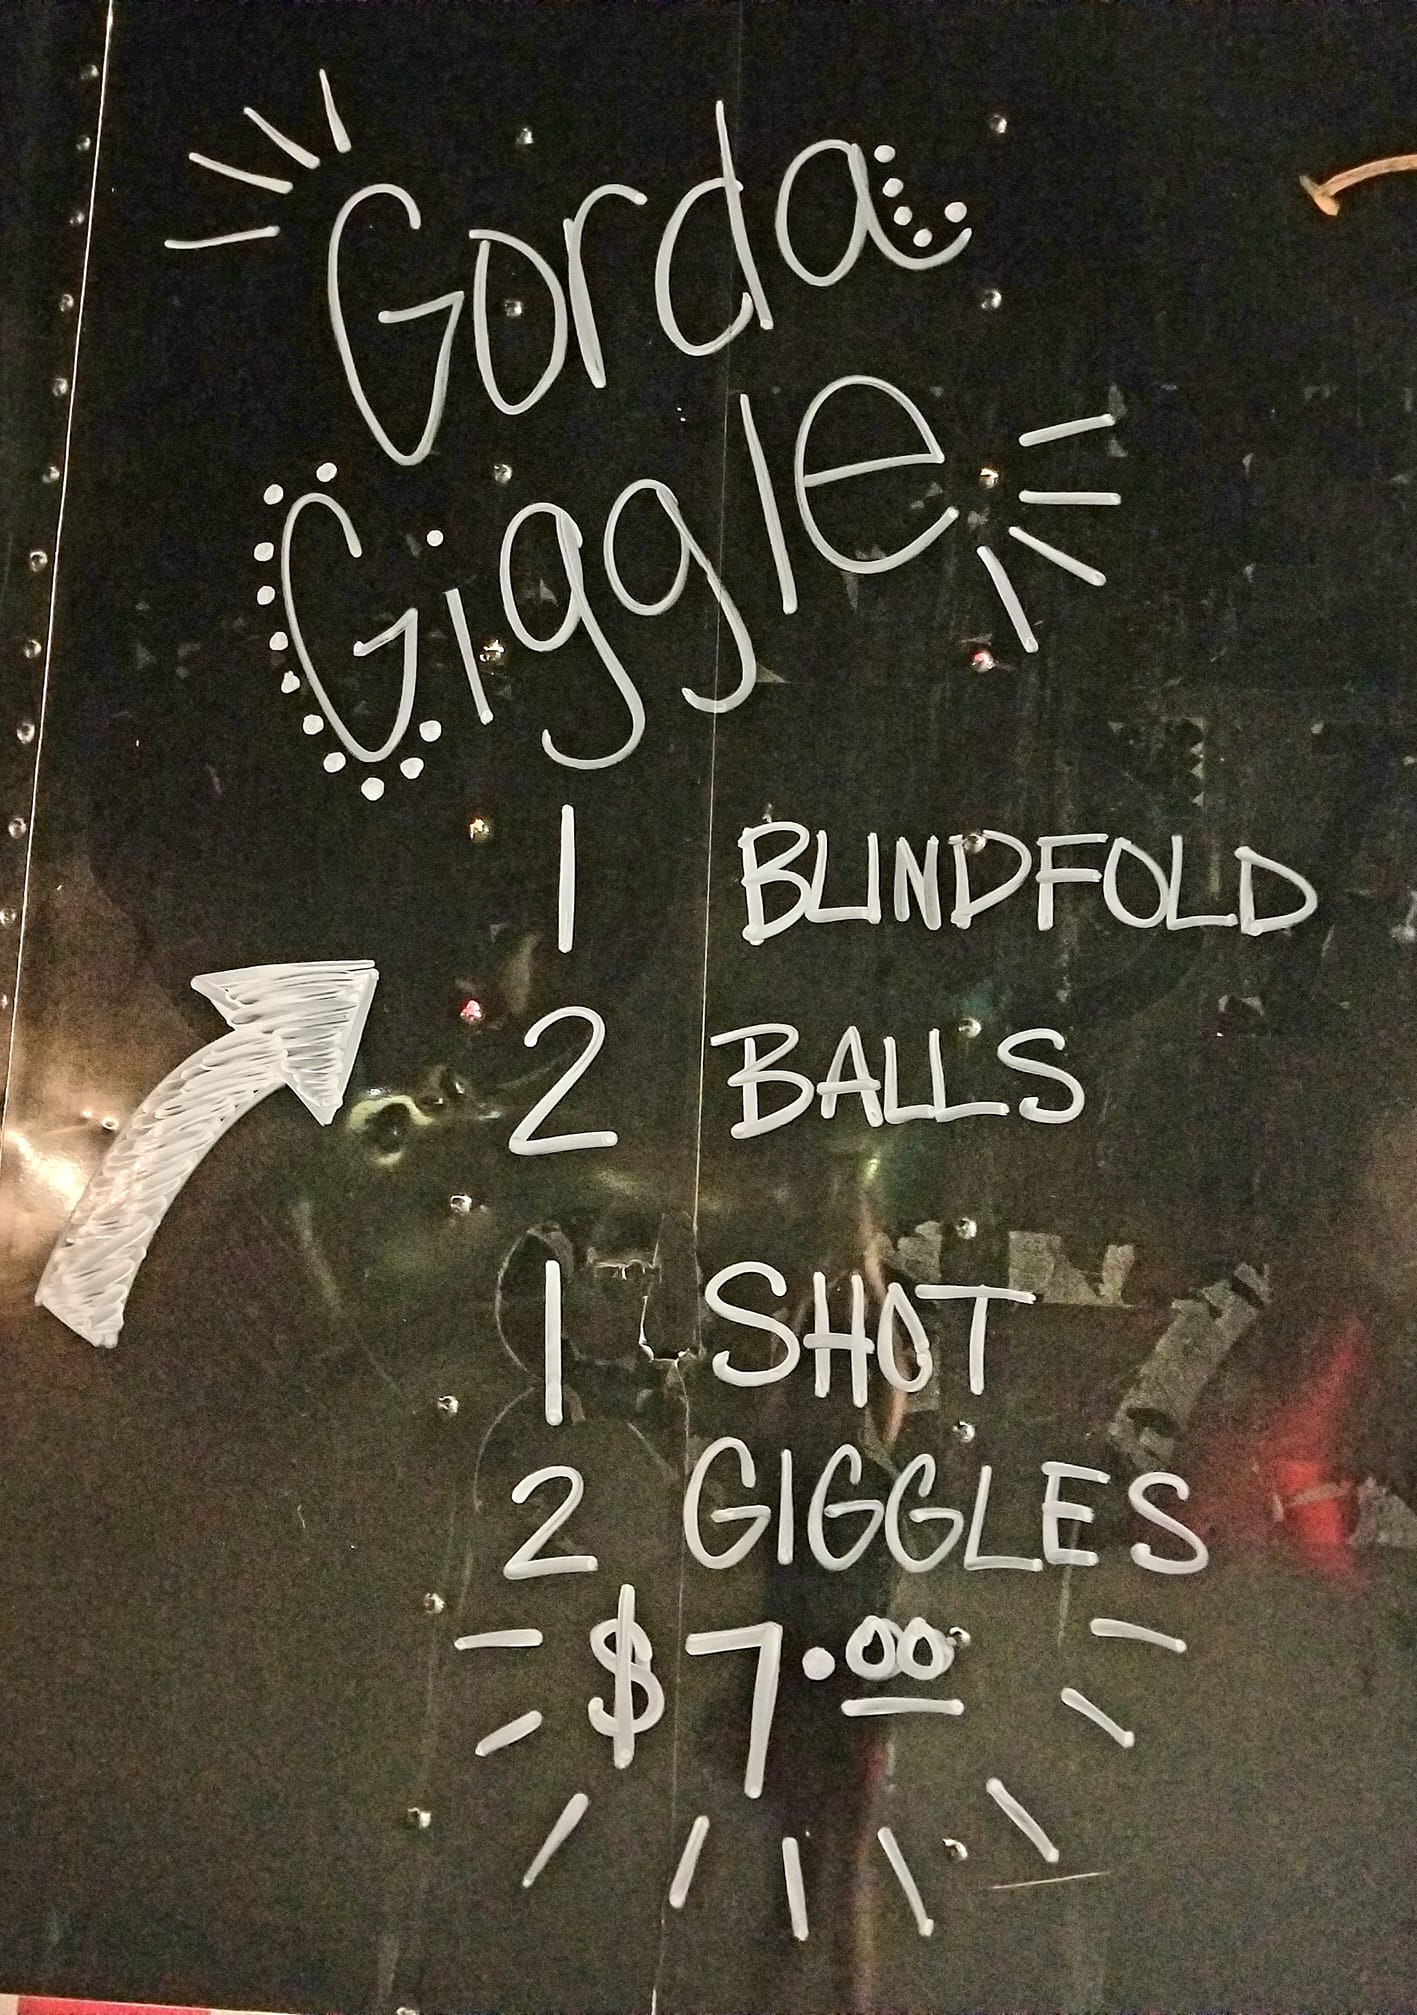 Gorda
Giggle
1 BLINDFOLD
2 BALLS
1 SHOT
2 GIGGLES
$7.00